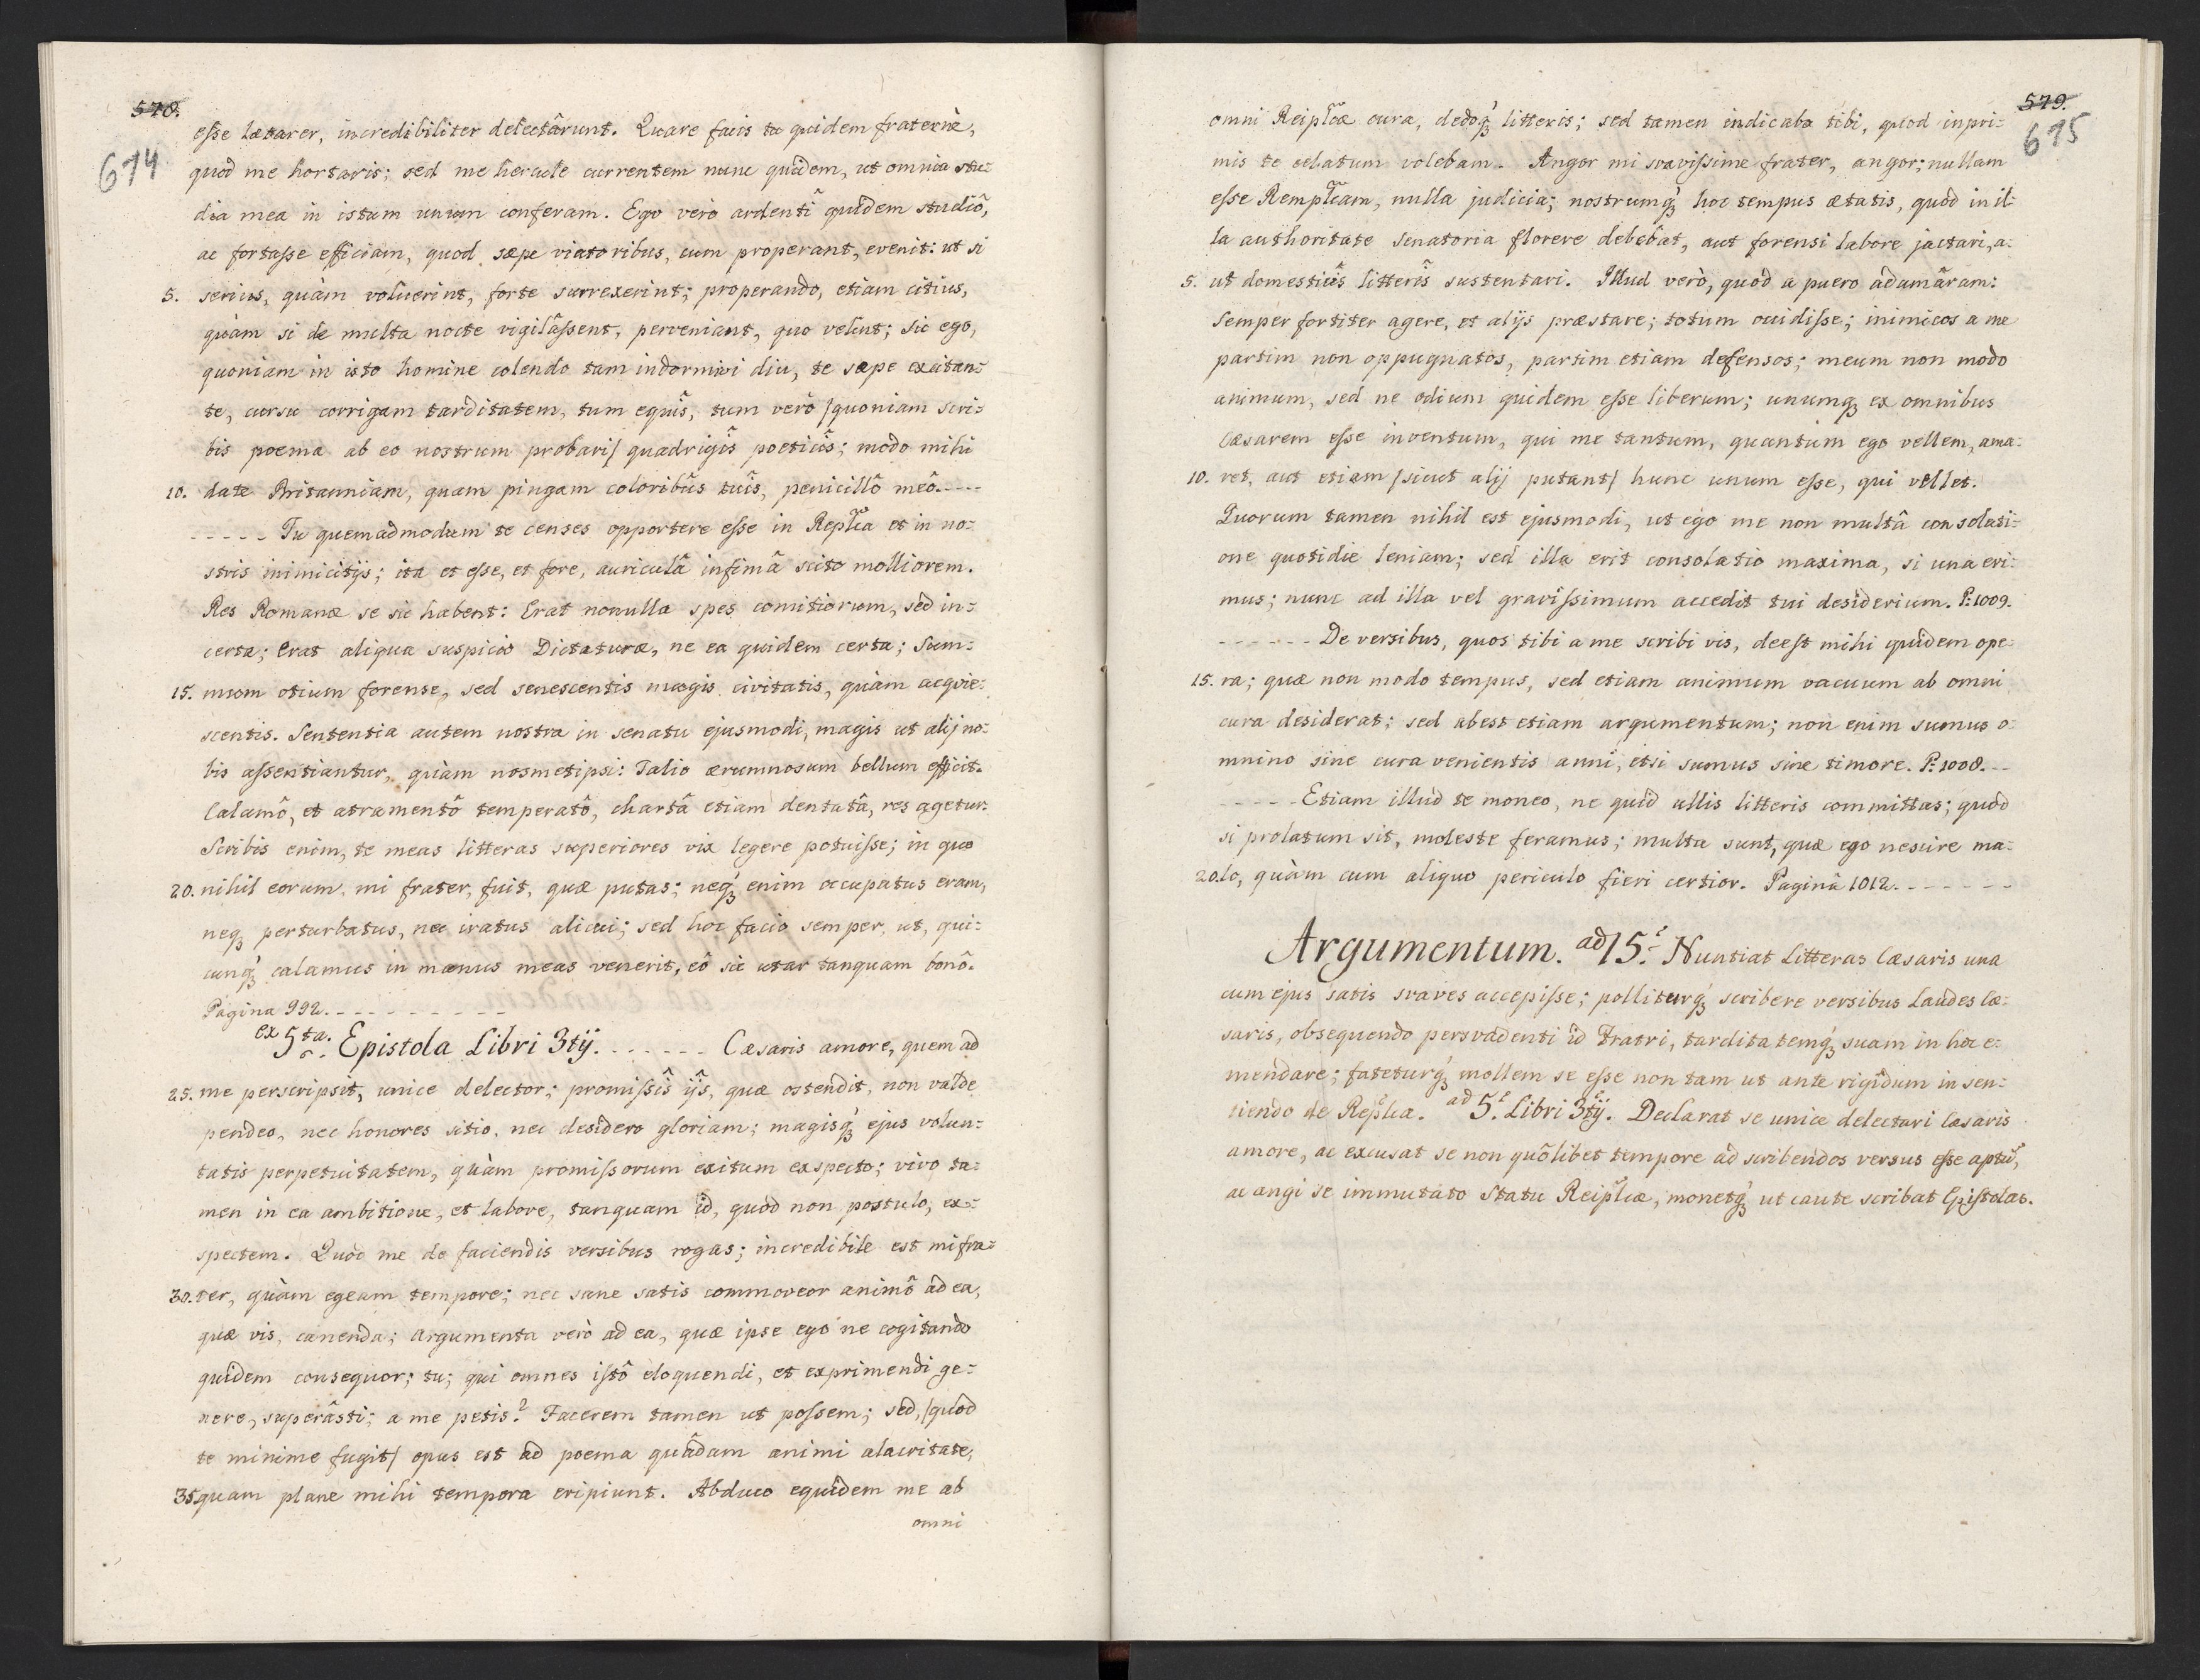 578.
674
esse lætarer, incredibiliter delectârunt. Quare facis tu quidem fraternè,
quod me hortaris; sed me hercule currentem nunc quidem, ut omnia stu=
dia mea in istum unum conferam. Ego verò ardenti quidem studiô,
ac fortasse efficiam, quod sæpe viatoribus, cum properant, evenit: ut si
5. serius, quàm voluerint, forte surrexerint; properando, etiam citius,
quàm si de multa nocte vigilâssent, perveniant, quo velint; sic ego,
quoniam in isto homine colendo tam indormivi diu, te sæpe excitan=
te, cursu corrigam tarditatem, tum equîs, tum verò /quoniam scri=
bis poema ab eo nostrum probari/ quadrigîs poeticîs; modo mihi
10. date Britanniam, quam pingam coloribûs tuîs, penicillô meô.----
----- Tu quemadmodum te censes opportere esse in Repl̃ca et in no=
stris inimicitijs; ita et esse, et fore, auriculâ infimâ scito molliorem.
Res Romanæ se sic habent: Erat nonulla spes comitiorum, sed in=
certa; Erat aliqua suspicio Dictaturæ, ne ea quidem certa; Sum=
15. mum otium forense, sed senescentis magis civitatis, quàm acqvie=
scentis. Sententia autem nostra in senatu ejusmodi, magis ut alij no=
bis assentiantur, quàm nosmetipsi: Talio ærumnosum bellum efficit.
Calamô, et atramentô temperatô, chartâ etiam dentatâ, res agetur.
Scribis enim, te meas litteras superiores vix legere potuisse; in quo
20. nihil eorum, mi frater, fuit, quæ putas; neqꝫ enim occupatus eram,
neqꝫ perturbatus, nec iratus alicui; sed hoc facio semper, ut, qui=
cunqꝫ calamus in manus meas venerit, eô sic utar tanquam bonô.
Pagina 992.----------
ex 5ta. Epistola Libri 3tij. ------ Cæsaris amore, quem ad
25. me perscripsit, unice delector; promissîs ijs, quæ ostendit, non valde
pendeo, nec honores sitio, nec desidero gloriam; magisqꝫ ejus volun=
tatis perpetuitatem, quàm promissorum exitum exspecto; vivo ta=
men in ea ambitione, et labore, tanquam id, quod non postulo, ex=
spectem. Quod me de faciendis versibus rogas; incredibile est mi fra=
30. ter, quàm egeam tempore; nec sane satis commoveor animô ad ea,
quæ vis, canenda; Argumenta verò ad ea, quæ ipse ego ne cogitando
quidem consequor; tu; qui omnes istô eloquendi, et exprimendi ge=
nere, superâsti; a me petis? Facerem tamen ut possem; sed, /quod
te minime fugit/ opus est ad poema quâdam animi alacritate,
35. quam plane mihi tempora eripiunt. Abduco equidem me ab
omni
579.
675
omni Reipl̃cæ cura, dedoqꝫ litteris; sed tamen indicabo tibi, quod inpri=
mis te celatum volebam. Angor mi svavissime frater, angor; nullam
esse Rempl̃cam, nulla judicia; nostrumqꝫ hoc tempus ætatis, quod in il=
la authoritate senatoria florere debebat, aut forensi labore jactari, a=
5. ut domesticîs litterîs sustentari. Illud verò, quod a puero adamâram:
Semper fortiter agere, et alijs præstare; totum occidisse; inimicos a me
partim non oppugnatos, partim etiam defensos; meum non modo
animum, sed ne odium quidem esse liberum; unumqꝫ ex omnibus
Cæsarem esse inventum, qui me tantum, quantum ego vellem, ama=
10. ret, aut etiam /sicut alij putant/ hunc unum esse, qui vellet.
Quorum tamen nihil est ejusmodi, ut ego me non multâ consolati=
one quotidie leniam; sed illa erit consolatio maxima, si una eri=
mus; nunc ad illa vel gravissimum accedit tui desiderium. P: 1009.
------ De versibus, quos tibi a me scribi vis, deest mihi quidem ope=
15. ra; quæ non modo tempus, sed etiam animum vacuum ab omni
cura desiderat; sed abest etiam argumentum; non enim sumus o=
mnino sine cura venientis anni, etsi sumus sine timore. P: 1008.--
----- Etiam illud te moneo, ne quid ullis litteris committas; quod
si prolatum sit, moleste feramus; multa sunt, quæ ego nescire ma=
20. lo, quàm cum aliquo periculo fieri certior. Paginâ 1012.-------
Argumentum. ad 15. Nuntiat Litteras Cæsaris una
cum ejus satis svaves accepisse; polliturqꝫ scribere versibus Laudes Cæ=
saris, obsequendo persvadenti id Fratri, tarditatemqꝫ suam in hoc e=
mendare; fateturqꝫ mollem se esse non tam ut ante rigidum in sen=
tiendo de Repl̃ca. ad 5. Libri 3tij. Declarat se unice delectari Cæsaris
amore, ac excusat se non quôlibet tempore ad scribendos versus esse aptũ,
ac angi se immutato Statu Reipl̃cæ, monetqꝫ ut caute scribat Epistolas.